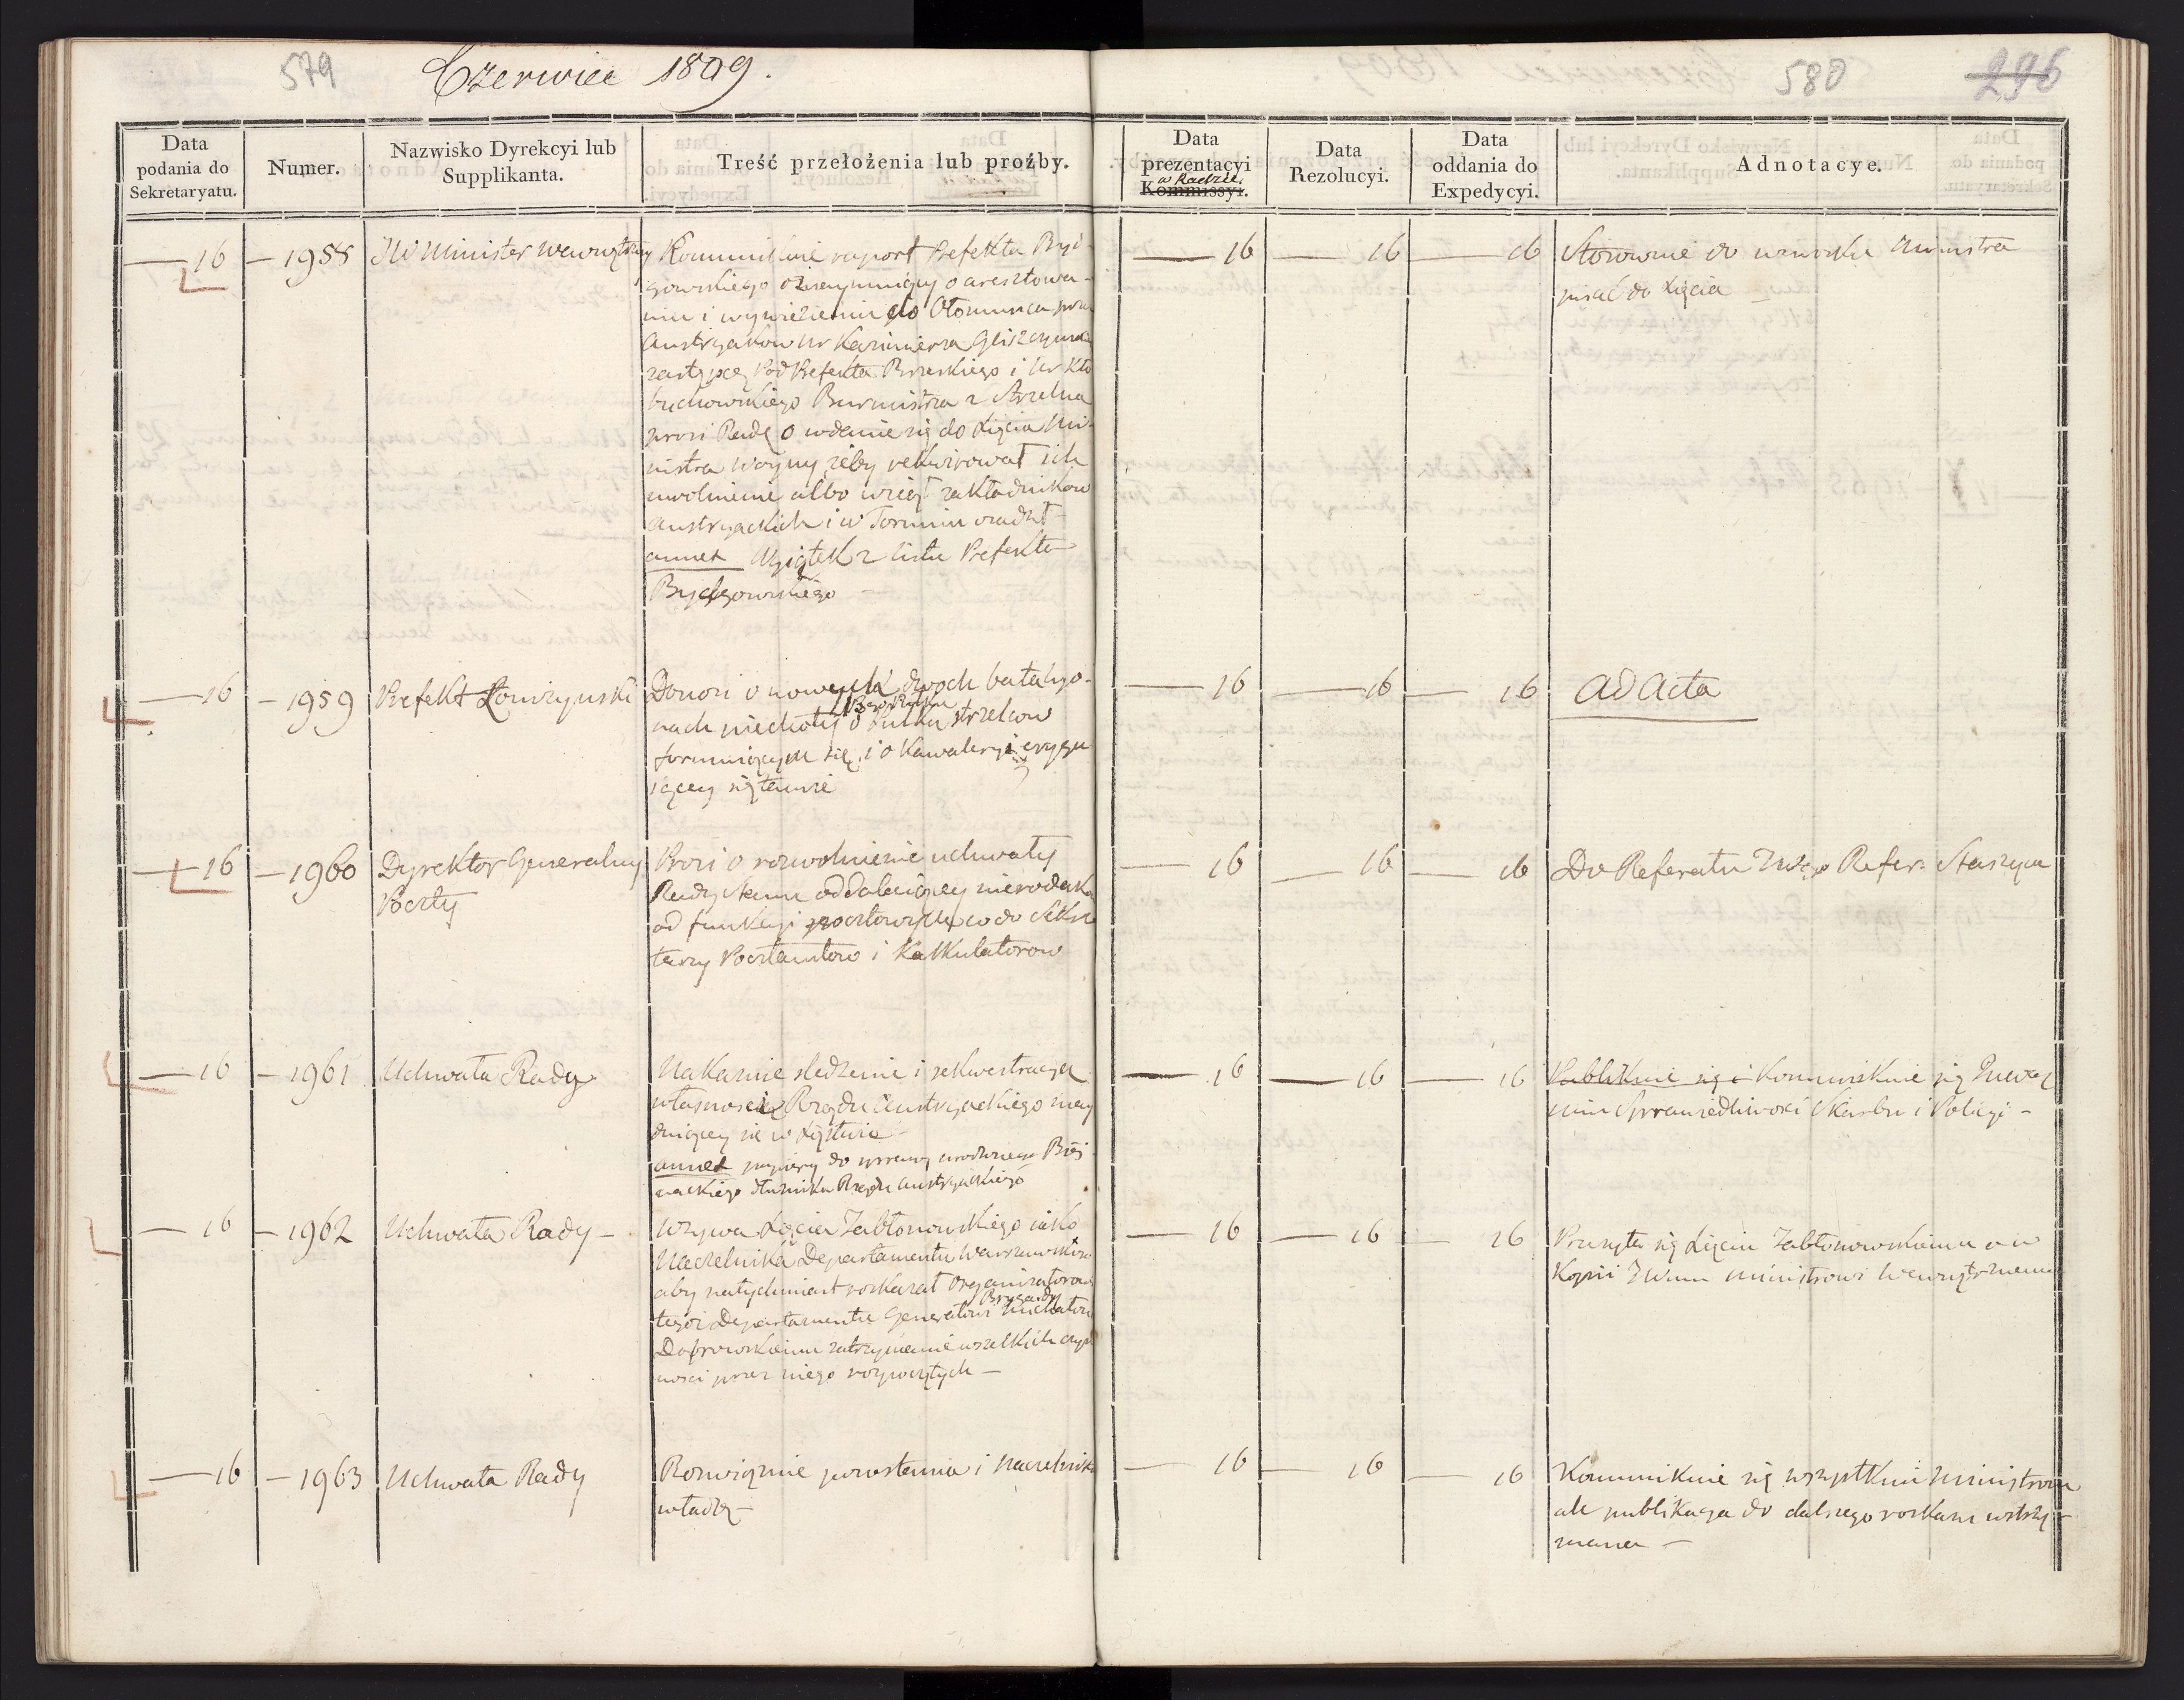 579
Czerwiec 1809.
580
296
Data podania do Sekretaryatu.
Numer.
Nazwisko Dyrekcyi lub Supplikanta.
Treść przełożenia lub proźby.
Data prezentacyi w Radzie Kommissyi.
Data Rezolucyi.
Data oddania do Expedycyi.
Adnotacye.
— 16 — 1958 JW Minister Wewnętrzny
Kommunikuie raport Prefekta Byd-
gowskiego o aresztowa-
niu i wywiezieniu do Ołomunca przez
Austryakow Ur Kazimierza Gliszczyns
zastępcę PodPrefekta Brzeskiego i Ur Kło
buchowskiego Burmistrza z Strzelna
prosi Radę o udanie się do Xięcia Mi-
nistra Woyny żeby rekwirował ich
uwolnienie albo wziął zakładnikow
Austryackich i w Toruniu osadził
annex Wyiątek z listu Prefekta
Bydgowskiego —
— 16 — 16 — 16
Stosownie do wniosku Ministra
pisać do Xięcia —
— 16 — 1959 Prefekt Łomżynski
Donosi o nowych dwoch batalyo-
nach piechoty o Pułku strzelcow
formuiącym się, i o Kawaleryi erygu
iącey się tamże
— 16 — 16 — 16
Ad Acta
— 16 — 1960 Dyrektor Generalny
Poczty
Prosi o rozwolnienie uchwały
Rady Stanu oddalaiącey nierodaka
od funkcyi pocztowych co do Sekre
tarzy Pocztamtow i Kalkulatorow
— 16 — 16 — 16
Do Referatu JWgo Refer. Staszyca
— 16 — 1961 Uchwała Rady
Nakazuie sledzenie i sekwestracyą
własnosci Rządu Austryackiego znay
duiącey się w Xięstwie —
annex papiery do sprawy urodzonego
dłużnika Rządu Austryackiego
— 16 — 16 — 16
Publikuie się i Kommunikuie się
Sprawiedliwosci Skarbu i Policyi —
— 16 — 1962 Uchwała Rady —
Wzywa Xięcia Jabłonowskiego iako
Naczelnika Departamentu Warszawskiego
aby natychmiast rozkazał Organizatorowi
Brygady
tegoż Departamentu Generałowi Michałowi
Dąbrowskiemu zatrzymanie wszelkich czyn
nosci przez niego rozpoczętych —
— 16 — 16 — 16
Przesyła się Xięciu Jabłonowskiemu a w
Kopii JWmu Ministrowi Wewnętrznemu
— 16 — 1963 Uchwała Rady
Rozwiązuie powstania i Naczelniko
władzę —
— 16 — 16 — 16
Kommunikuie się wszystkim Ministrom
ale publikacya do dalszego rozkazu wstrzy-
mana —